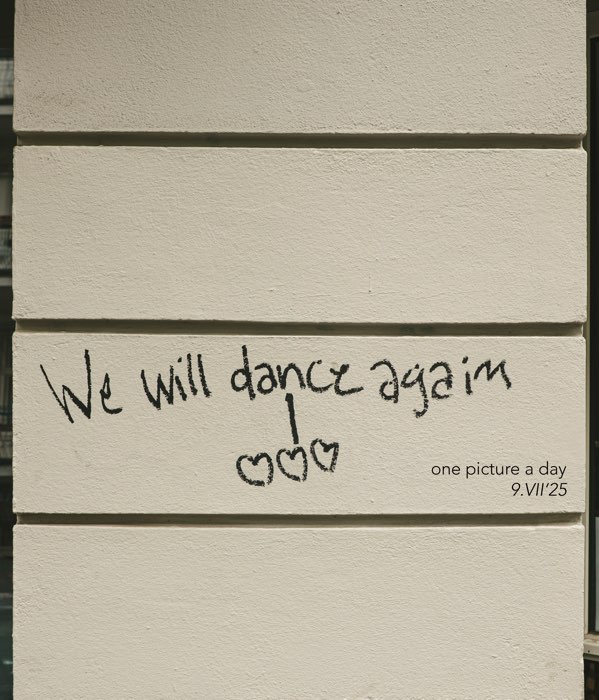 We will dance again
one picture a day
9.VII'25